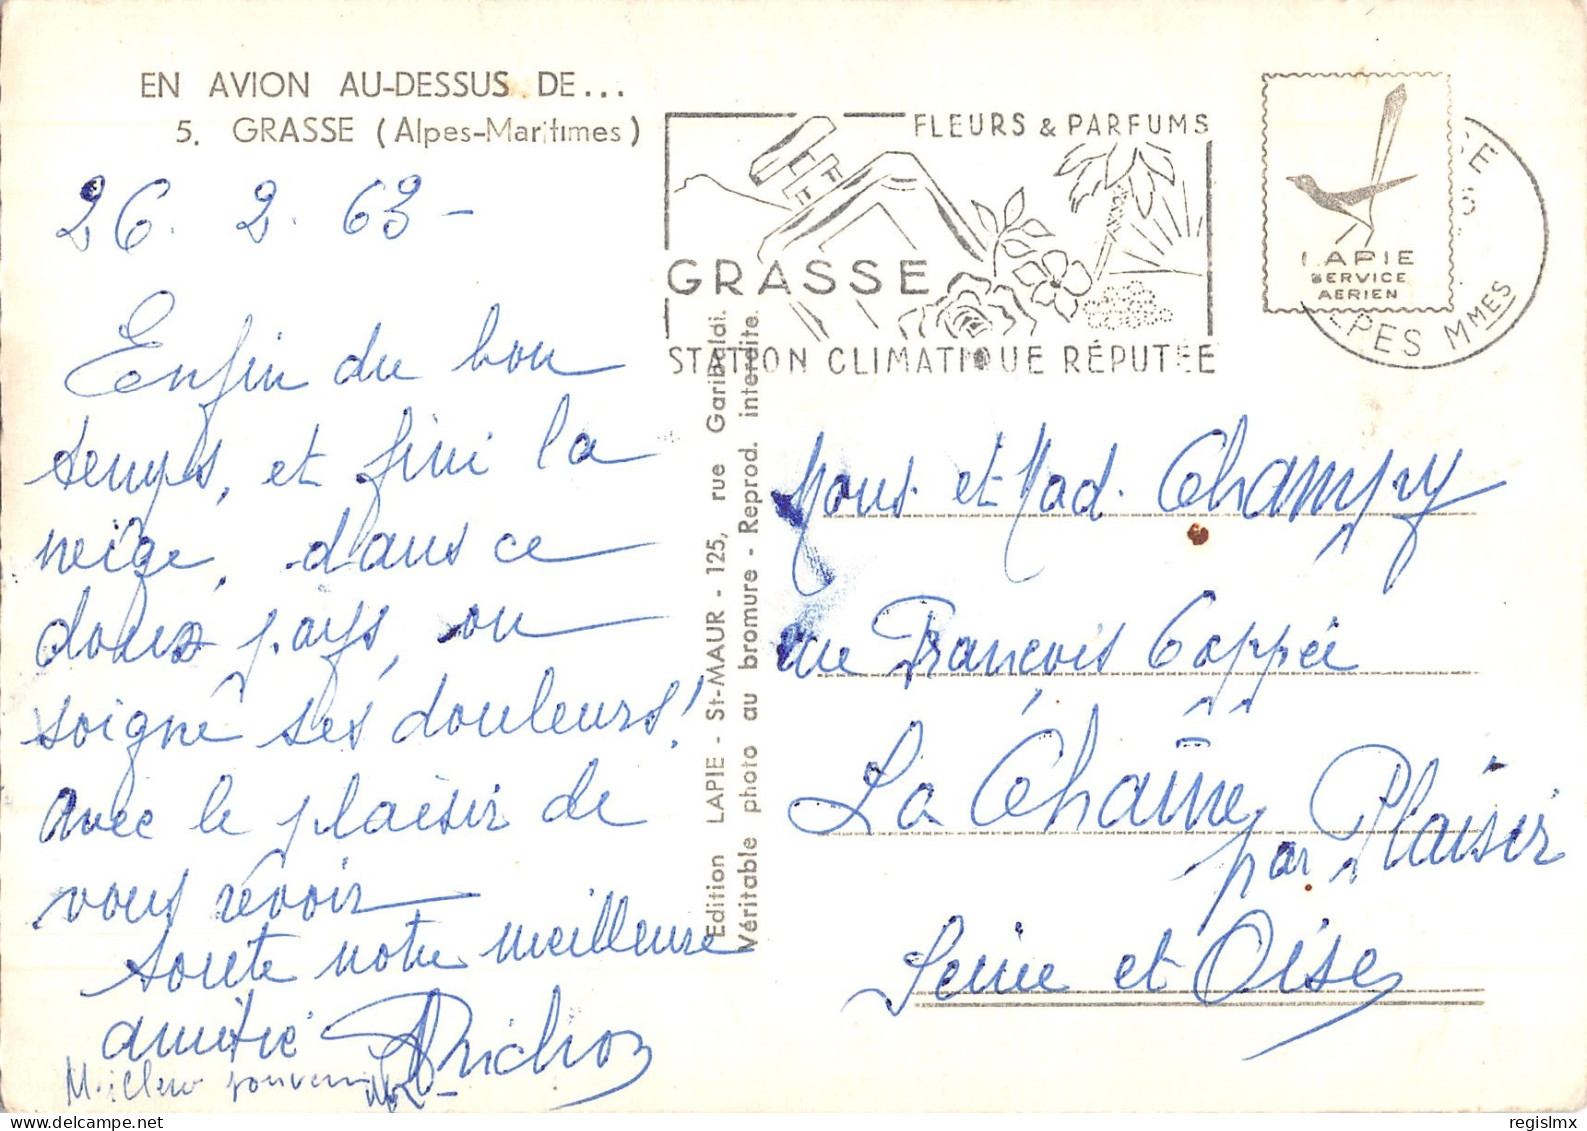 EN AVION AU-DESSUS DE...
5. GRASSE (Alpes-Maritimes)
26. 2. 63 -
Enfin du bon
temps, et fini la
neige, dans ce
doux pays, on
soigne ses douleurs!
avec le plaisir de
vous revoir
toute notre meilleure
amitié
souvenir
Edition LAPIE - St-MAUR - 125, rue Garibaldi.
Véritable photo au bromure - Reprod. interdite.
FLEURS & PARFUMS
GRASSE
STATION CLIMATIQUE RÉPUTÉE
LAPIE
SERVICE
AERIEN
ALPES MMES
Mons. et Mad. Champy
rue François Coppée
La Chaîne
par Plaisir
Seine et Oise
regislmx